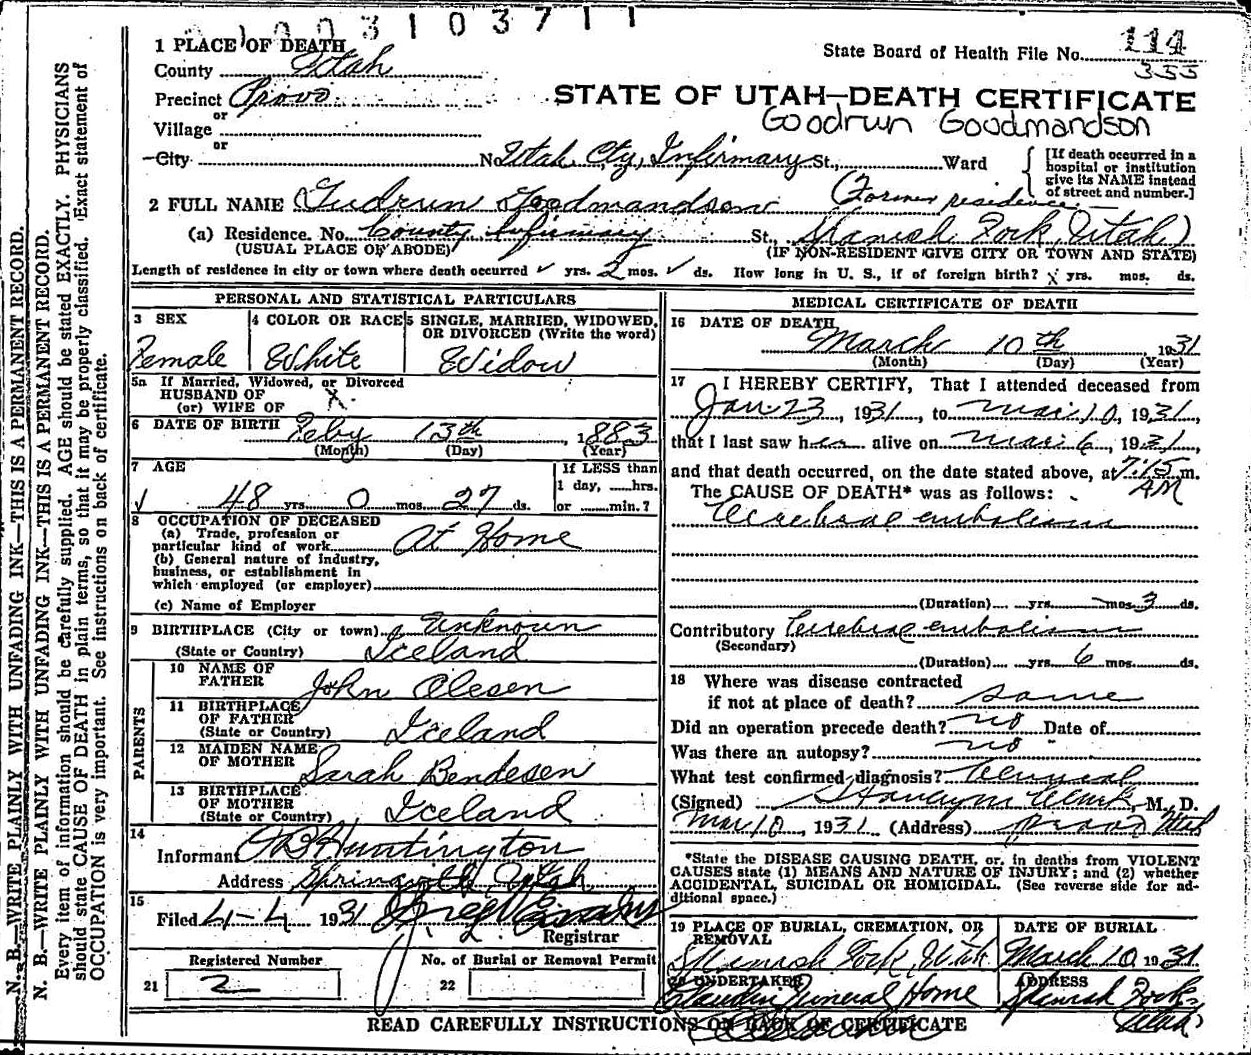 3103711
1 PLACE OF DEATH
County Utah
State Board of Health File No. 114
355
Precinct Provo
or
Village
or
City
STATE OF UTAH—DEATH CERTIFICATE
Goodrun Goodmandson
No. Utah Cty, Infirmary St., Ward
[If death occurred in a hospital or institution give its NAME instead of street and number.]
2 FULL NAME Gudrun Goodmandson (Former residence—
(a) Residence. No. County Infirmary St., Spanish Fork, Utah)
(USUAL PLACE OF ABODE) (IF NON-RESIDENT GIVE CITY OR TOWN AND STATE)
Length of residence in city or town where death occurred ✓ yrs. 2 mos. ✓ ds. How long in U. S., if of foreign birth? x yrs. mos. ds.
PERSONAL AND STATISTICAL PARTICULARS
3 SEX
Female
4 COLOR OR RACE
White
5 SINGLE, MARRIED, WIDOWED, OR DIVORCED (Write the word)
Widow
5a If Married, Widowed, or Divorced
HUSBAND OF
(or) WIFE OF X.
6 DATE OF BIRTH Feby 13th, 1883
(Month) (Day) (Year)
7 AGE
✓ 48 yrs. 0 mos. 27 ds.
If LESS than
1 day, ......hrs.
or ......min.?
8 OCCUPATION OF DECEASED
(a) Trade, profession or
particular kind of work At Home
(b) General nature of industry,
business, or establishment in
which employed (or employer)
(c) Name of Employer
9 BIRTHPLACE (City or town) Unknown
(State or Country) Iceland
PARENTS
10 NAME OF FATHER John Olesen
11 BIRTHPLACE OF FATHER
(State or Country) Iceland
12 MAIDEN NAME OF MOTHER Sarah Bendesen
13 BIRTHPLACE OF MOTHER
(State or Country) Iceland
14
Informant Huntington
Address Springville, Utah
15
Filed 4-4 1931
Registrar
Registered Number
21 2
No. of Burial or Removal Permit
22
MEDICAL CERTIFICATE OF DEATH
16 DATE OF DEATH
March 10th 1931
(Month) (Day) (Year)
17 I HEREBY CERTIFY, That I attended deceased from
Jan. 23, 1931, to Mar. 10, 1931,
that I last saw her alive on Mar. 6, 1931,
and that death occurred, on the date stated above, at 7:15 m.
AM
The CAUSE OF DEATH* was as follows:
Cerebral embolism
(Duration) yrs. mos. 3 ds.
Contributory Cerebral embolism
(Secondary)
(Duration) yrs. 6 mos. ds.
18 Where was disease contracted
if not at place of death? same
Did an operation precede death? no Date of
Was there an autopsy? no "
What test confirmed diagnosis? Clinical
(Signed) Clark, M. D.
Mar 10, 1931 (Address) Provo Utah
*State the DISEASE CAUSING DEATH, or, in deaths from VIOLENT
CAUSES state (1) MEANS AND NATURE OF INJURY; and (2) whether
ACCIDENTAL, SUICIDAL OR HOMICIDAL. (See reverse side for ad-
ditional space.)
19 PLACE OF BURIAL, CREMATION, OR REMOVAL
Spanish Fork, Utah
DATE OF BURIAL
March 10 1931
20 UNDERTAKER
Claudin Funeral Home
ADDRESS
Spanish Fork-
Utah
READ CAREFULLY INSTRUCTIONS ON BACK OF CERTIFICATE
N. B.—WRITE PLAINLY WITH UNFADING INK—THIS IS A PERMANENT RECORD.
N. B.—WRITE PLAINLY WITH UNFADING INK—THIS IS A PERMANENT RECORD.
Every item of information should be carefully supplied. AGE should be stated EXACTLY. PHYSICIANS
should state CAUSE OF DEATH in plain terms, so that it may be properly classified. Exact statement of
OCCUPATION is very important. See instructions on back of certificate.